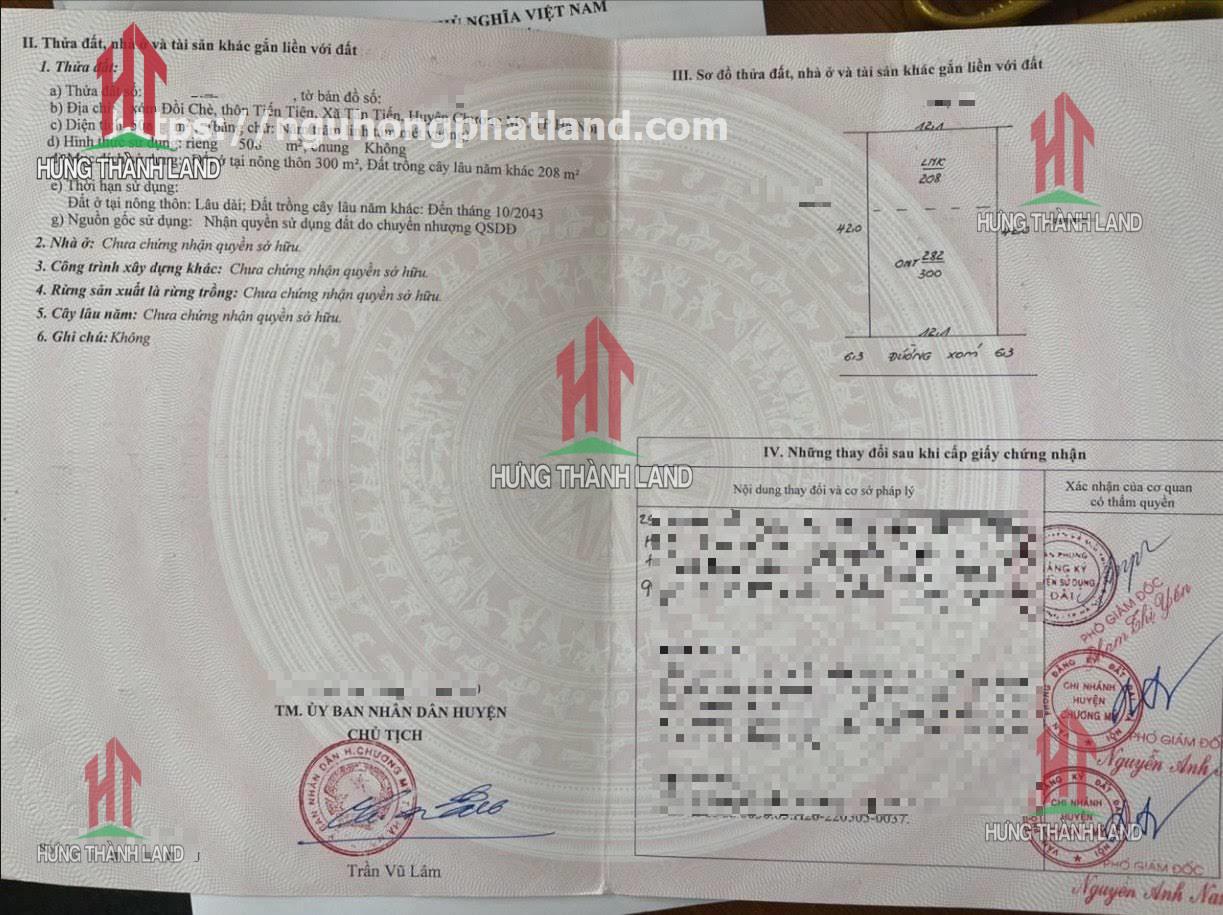 NGHĨA VIỆT NAM
II. Thửa đất, nhà ở và tài sản khác gắn liền với đất
1. Thửa đất:
a) Thửa đất số: , tờ bản đồ số:
b) Địa chỉ: xóm Đồi Chè, thôn Tiến Tiên, Xã Tân Tiến, Huyện Chương
c) Diện bằng chữ: Năm trăm
d) Hình thức sử dụng: riêng 508 m², chung Không
ở tại nông thôn 300 m², Đất trồng cây lâu năm khác 208 m²
e) Thời hạn sử dụng:
Đất ở tại nông thôn: Lâu dài; Đất trồng cây lâu năm khác: Đến tháng 10/2043
g) Nguồn gốc sử dụng: Nhận quyền sử dụng đất do chuyển nhượng QSDĐ
2. Nhà ở: Chưa chứng nhận quyền sở hữu.
3. Công trình xây dựng khác: Chưa chứng nhận quyền sở hữu.
4. Rừng sản xuất là rừng trồng: Chưa chứng nhận quyền sở hữu.
5. Cây lâu năm: Chưa chứng nhận quyền sở hữu.
6. Ghi chú: Không
https://nguhongphatland.com
HƯNG THÀNH LAND
TM. ỦY BAN NHÂN DÂN HUYỆN
CHỦ TỊCH
BAN NHÂN DÂN H. CHƯƠNG MỸ
Trần Vũ Lâm
HƯNG THÀNH LAND
HƯNG THÀNH LAND
III. Sơ đồ thửa đất, nhà ở và tài sản khác gắn liền với đất
12.1
LNK
208
HƯNG THÀNH LAND
42.0
42.0
ONT 282
300
12.1
6.3 ĐƯỜNG XÓM 6.3
IV. Những thay đổi sau khi cấp giấy chứng nhận
Nội dung thay đổi và cơ sở pháp lý
Xác nhận của cơ quan
có thẩm quyền
PHÒNG
ĐĂNG KÝ
SỬ DỤNG
ĐẤT
PHÓ GIÁM ĐỐC
Thị Yên
VĂN PHÒNG ĐĂNG KÝ ĐẤT ĐAI
CHI NHÁNH
HUYỆN
CHƯƠNG MỸ
PHÓ GIÁM ĐỐC
Nguyễn Anh
ĐĂNG KÝ ĐẤT
CHI NHÁNH
HUYỆN
HƯNG THÀNH LAND
PHÓ GIÁM ĐỐC
Nguyễn Anh